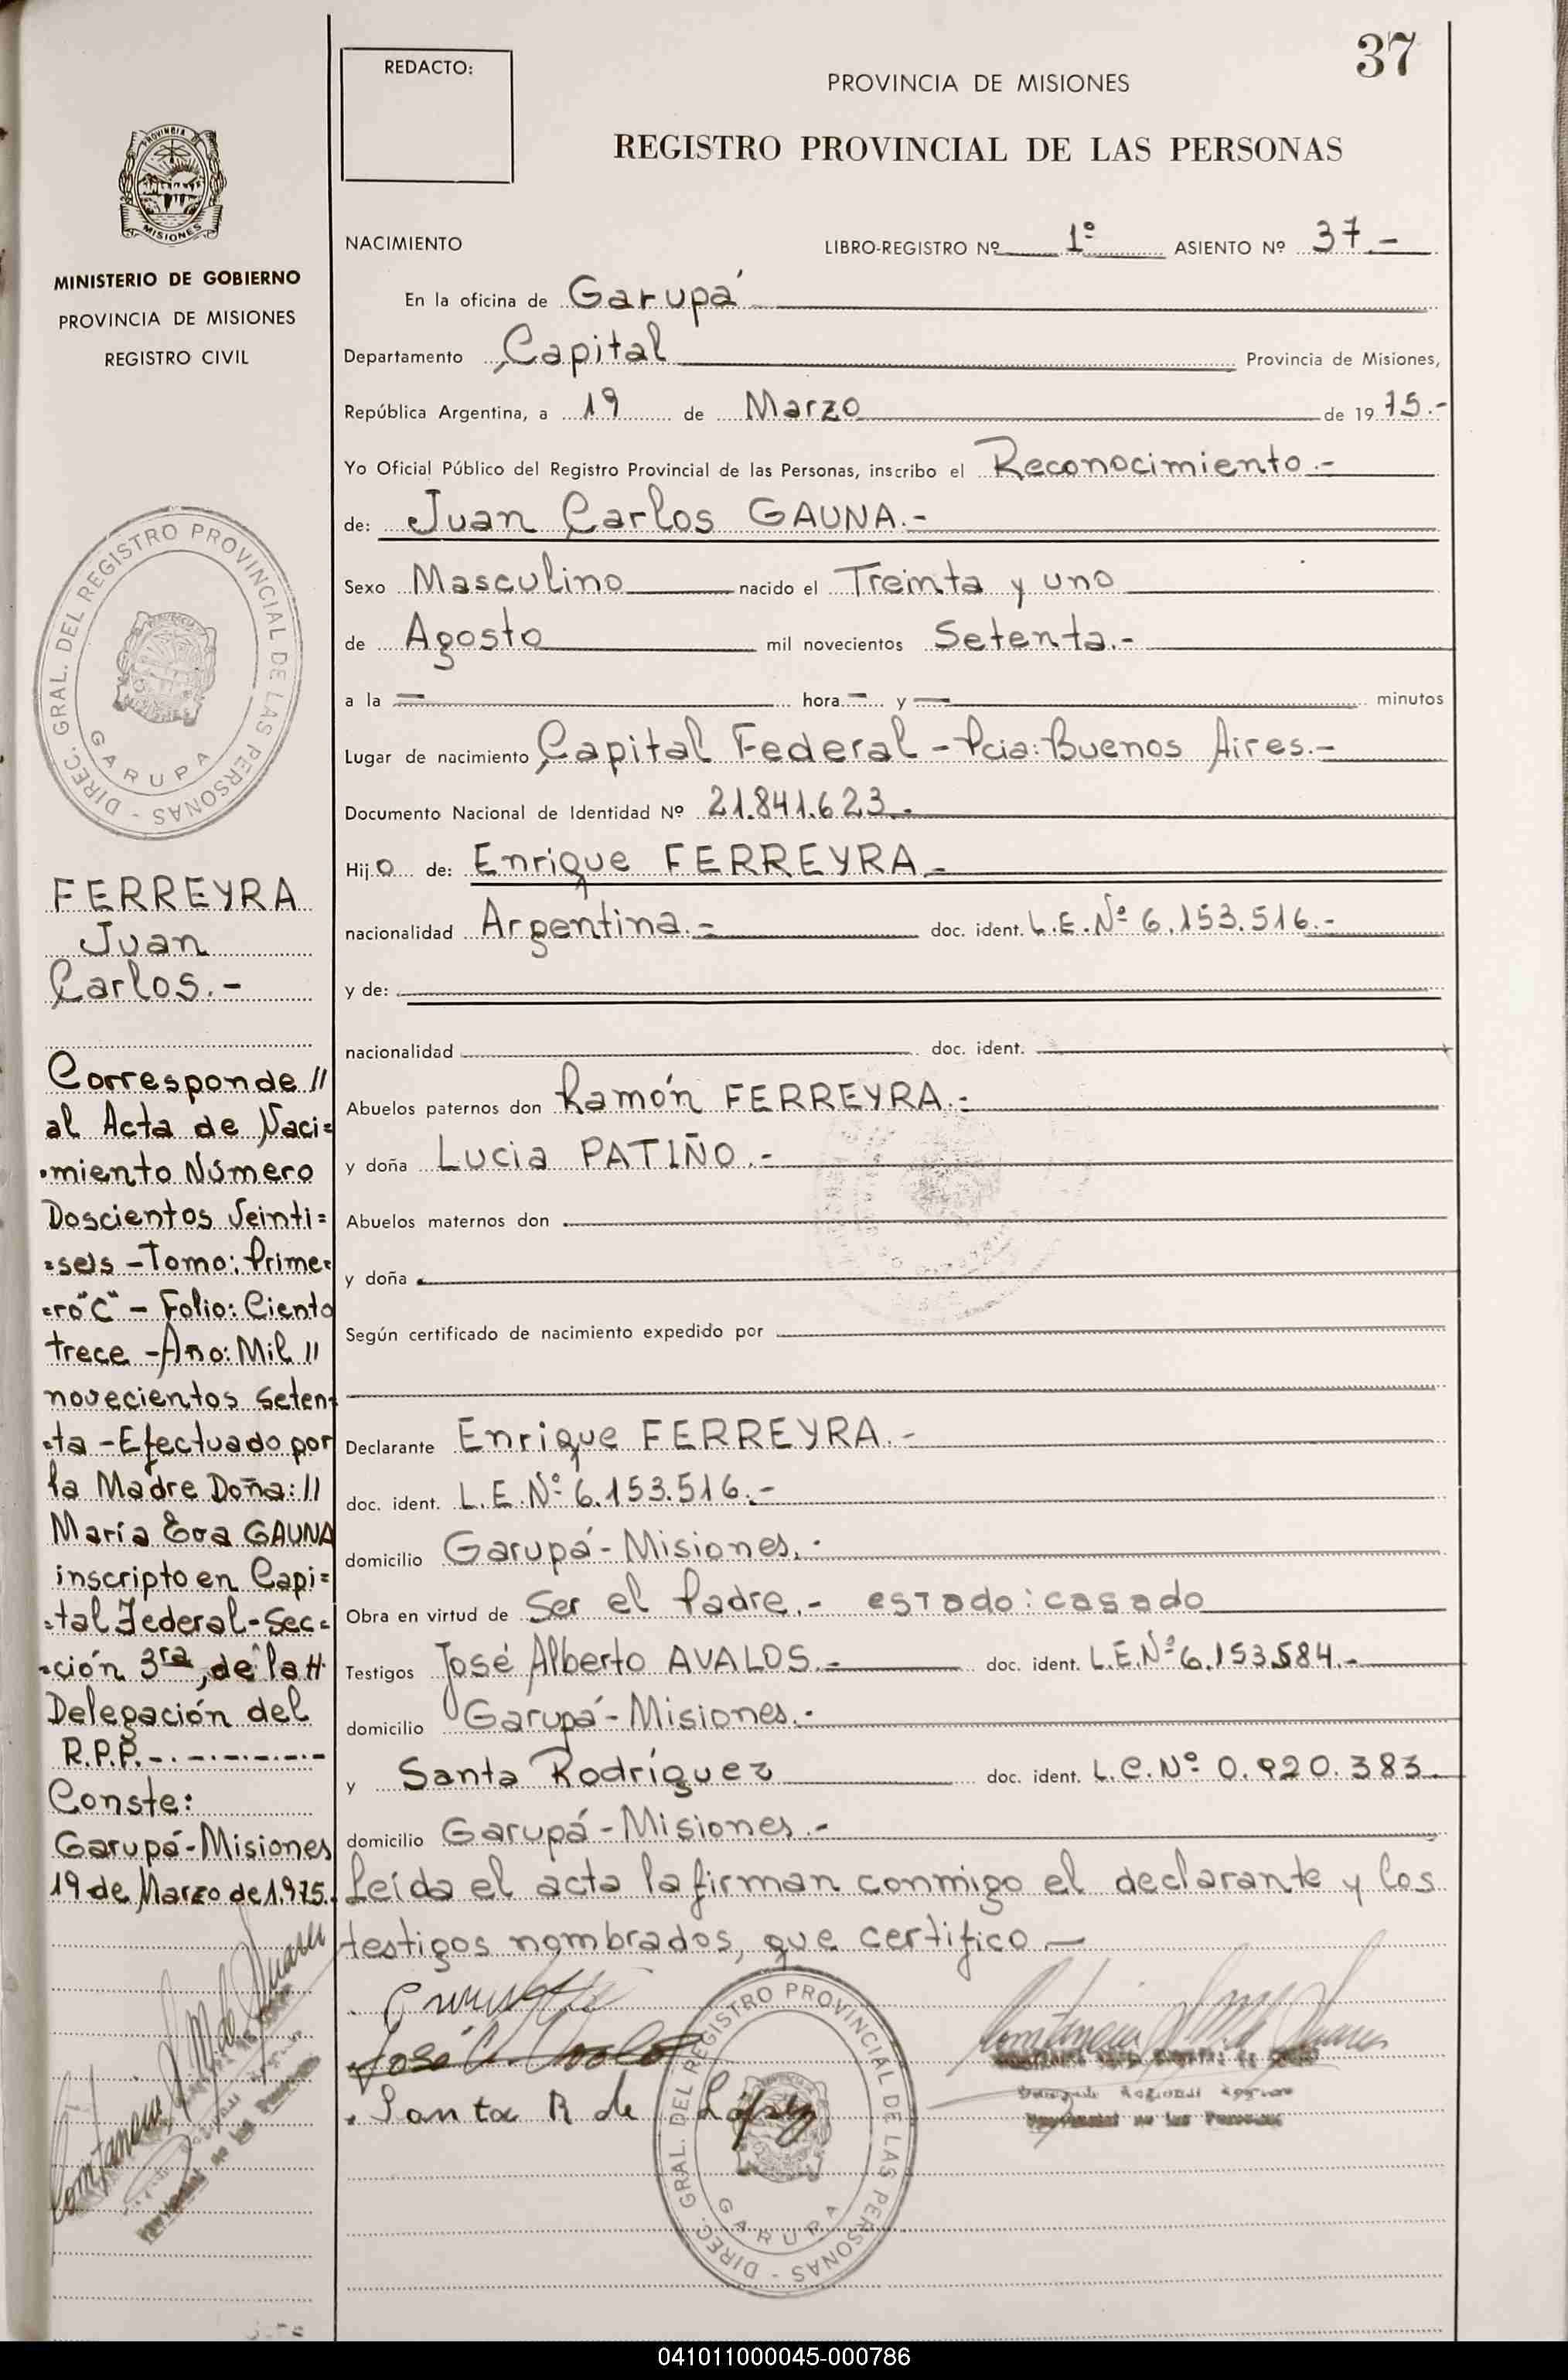 37
REDACTO:
PROVINCIA DE MISIONES
REGISTRO PROVINCIAL DE LAS PERSONAS
PROVINCIA
MISIONES
MINISTERIO DE GOBIERNO
PROVINCIA DE MISIONES
REGISTRO CIVIL
NACIMIENTO LIBRO-REGISTRO Nº 1º ASIENTO Nº 37.-
En la oficina de Garupá
Departamento Capital Provincia de Misiones,
República Argentina, a 19 de Marzo de 1975.-
Yo Oficial Público del Registro Provincial de las Personas, inscribo el Reconocimiento.-
de: Juan Carlos GAUNA.-
Sexo Masculino nacido el Treinta y uno
de Agosto mil novecientos Setenta.-
a la — hora — y — minutos
Lugar de nacimiento Capital Federal - Pcia: Buenos Aires.-
Documento Nacional de Identidad Nº 21.841.623.-
Hijo de: Enrique FERREYRA.-
nacionalidad Argentina.- doc. ident. L.E.Nº 6.153.516.-
y de:
nacionalidad doc. ident.
Abuelos paternos don Ramón FERREYRA.-
y doña Lucia PATIÑO.-
Abuelos maternos don
y doña
Según certificado de nacimiento expedido por
Declarante Enrique FERREYRA.-
doc. ident. L.E.Nº 6.153.516.-
domicilio Garupá-Misiones.-
Obra en virtud de Ser el Padre.- estado: casado
Testigos José Alberto AVALOS.- doc. ident. L.E.Nº 6.153.584.-
domicilio Garupá-Misiones.-
y Santa Rodríguez doc. ident. L.C.Nº 0.920.383.
domicilio Garupá-Misiones.-
Leída el acta la firman conmigo el declarante y los
testigos nombrados, que certifico.—
Santa R de López
DIREC. GRAL. DEL REGISTRO PROVINCIAL DE LAS PERSONAS -
GARUPA
DIREC. GRAL. DEL REGISTRO PROVINCIAL DE LAS PERSONAS -
GARUPA
FERREYRA
Juan
Carlos.-
Corresponde //
al Acta de Naci=
=miento Número
Doscientos Veinti=
=seis - Tomo: Prime=
=ro "C" - Folio: Ciento
trece - Año: Mil //
novecientos Seten=
=ta - Efectuado por
la Madre Doña: //
María Eva GAUNA
inscripto en Capi=
=tal Federal - Sec=
=ción 3ra, de la //
Delegación del
R.P.P. -.-.-.-.-.-
Conste:
Garupá-Misiones
19 de Marzo de 1.975.
041011000045-000786